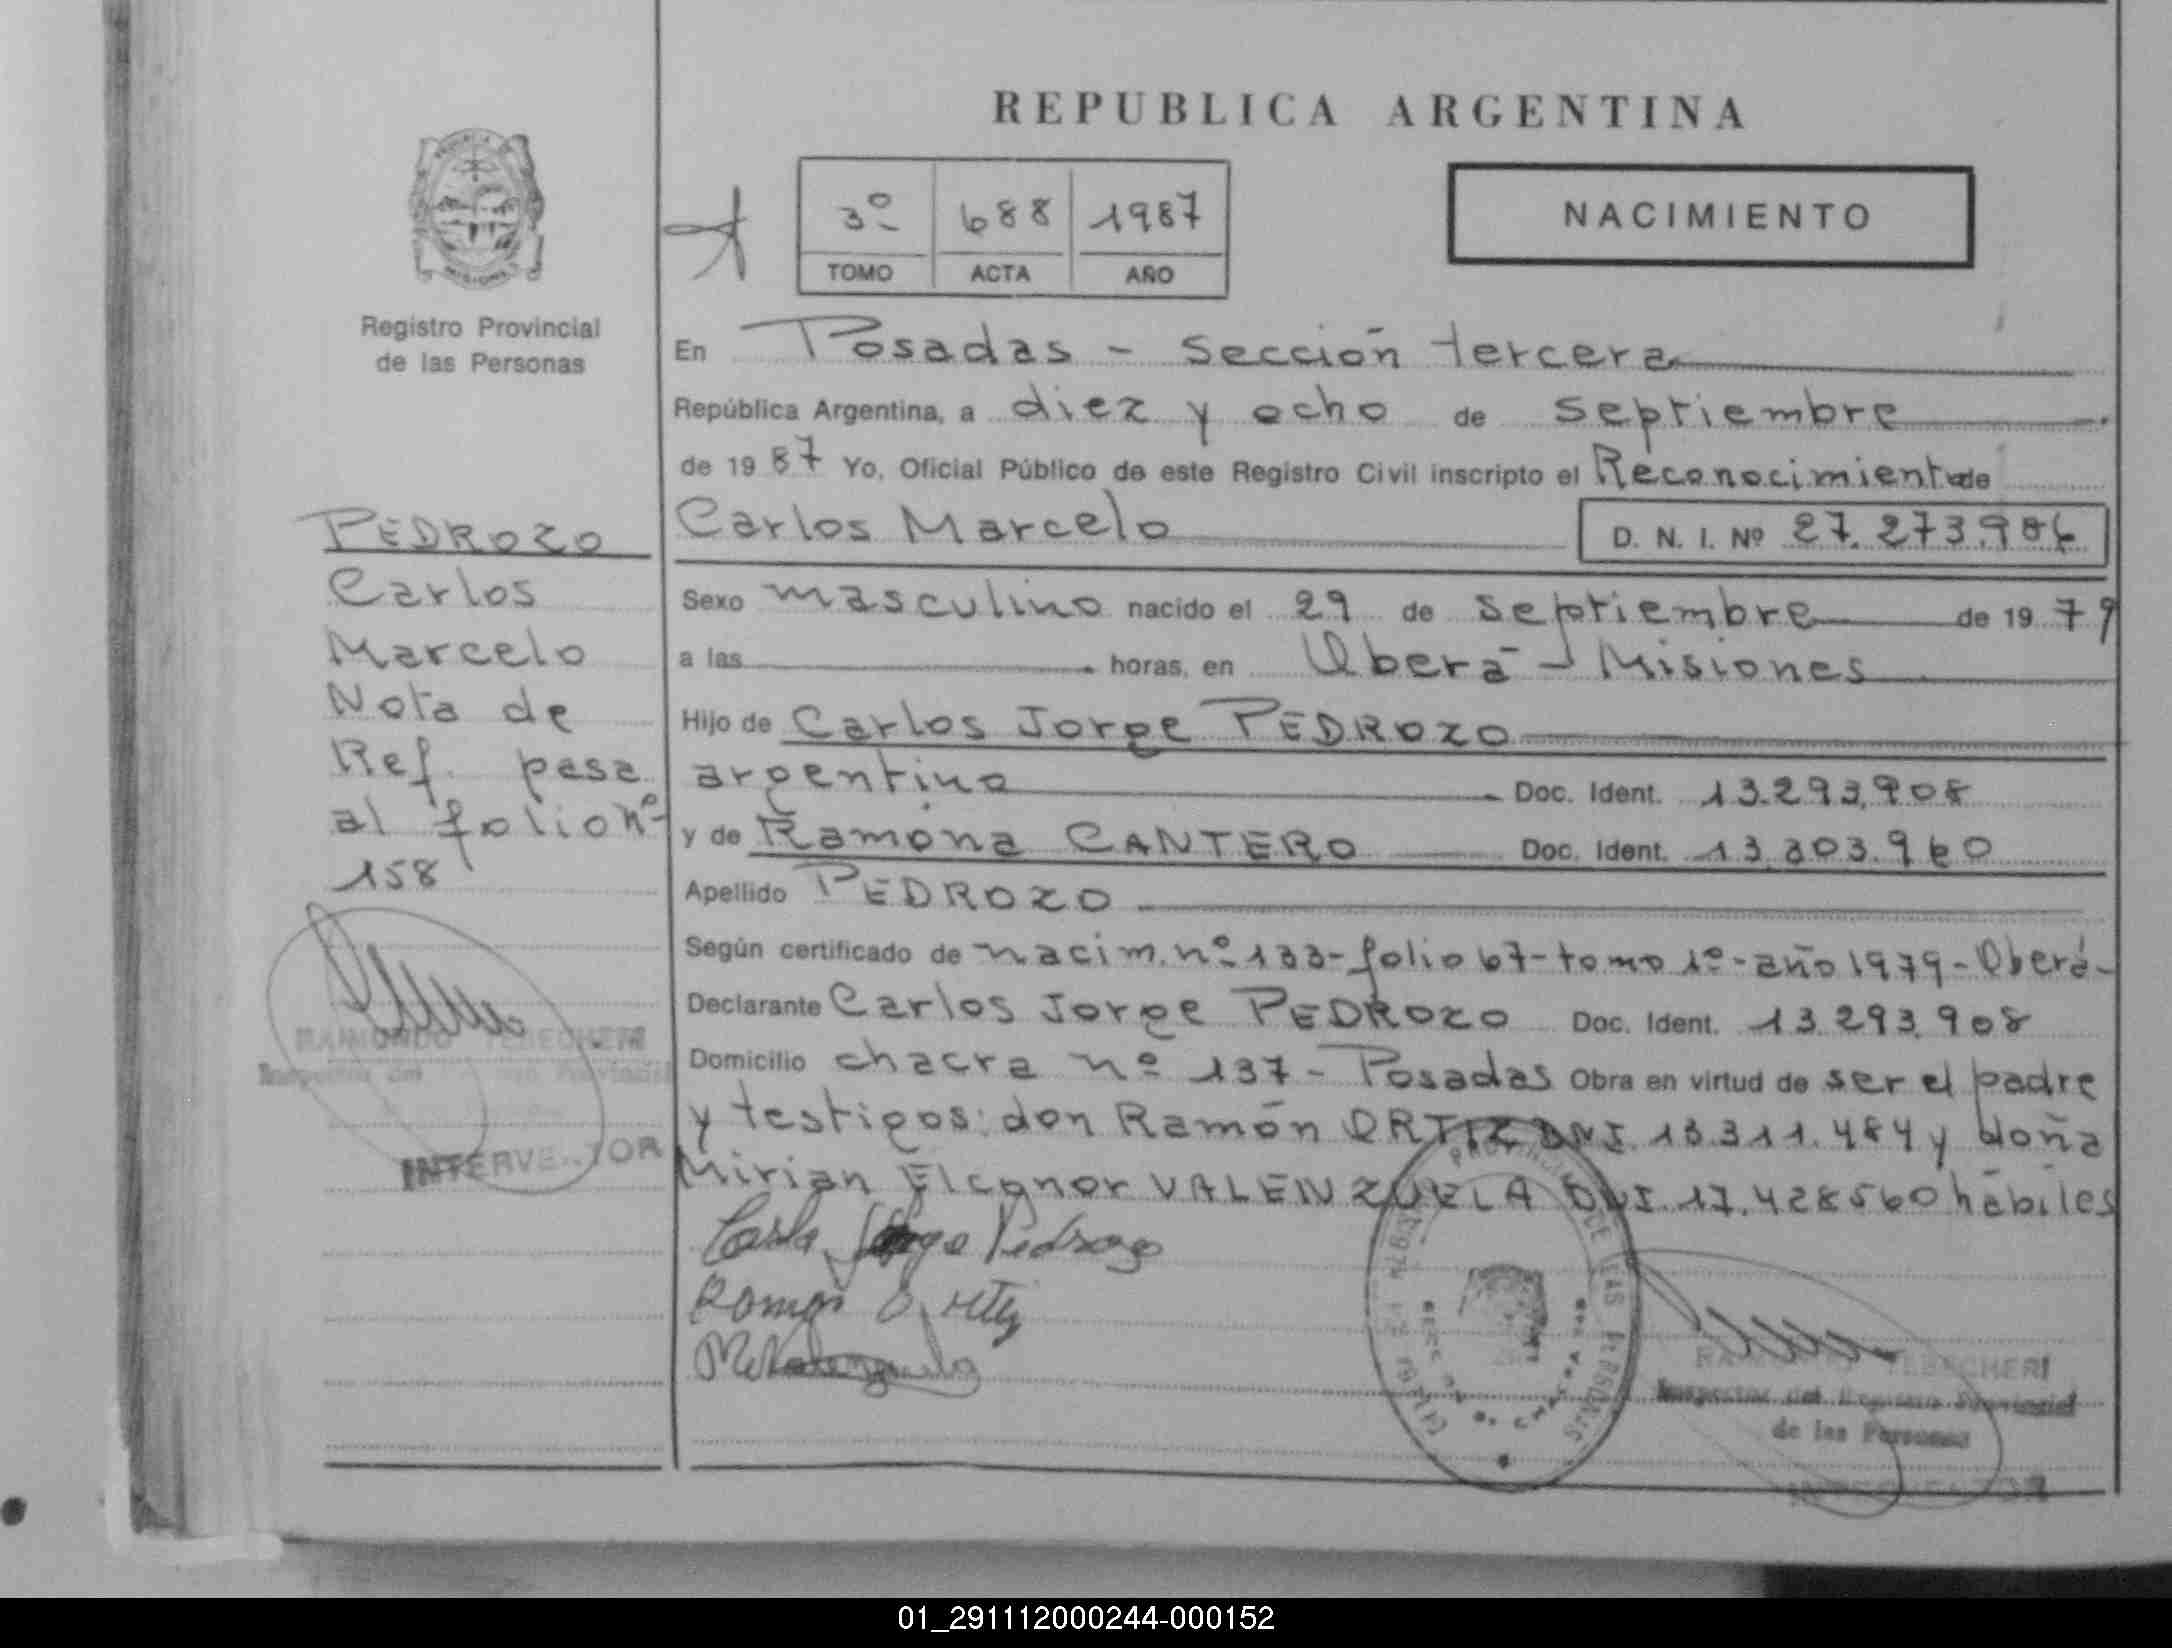 REPUBLICA ARGENTINA
3º 688 1987
TOMO ACTA AÑO
NACIMIENTO
Registro Provincial
de las Personas
PEDROZO
Carlos
Marcelo
Nota de
Ref. pasa
al folio nº
158
INTERVENTOR
En Posadas - Sección tercera
República Argentina, a diez y ocho de septiembre
de 19 87 Yo, Oficial Público de este Registro Civil inscripto el Reconocimiento de
Carlos Marcelo
D. N. I. Nº 27.273.986
Sexo masculino nacido el 29 de septiembre de 19 79
a las horas, en Oberá - Misiones
Hijo de Carlos Jorge PEDROZO
argentino Doc. Ident. 13.293.908
y de Ramona CANTERO Doc. Ident. 13.303.960
Apellido PEDROZO
Según certificado de nacim. nº 133-folio 67-tomo 1º-año 1979-Oberá-
Declarante Carlos Jorge PEDROZO Doc. Ident. 13.293.908
Domicilio chacra nº 137 - Posadas Obra en virtud de ser el padre
y testigos: don Ramón ORTIZ DNI. 13.311.484 y doña
Mirian Eleonor VALENZUELA DNI. 17.428560 hábiles
Carlos Jorge Pedrozo
Ramon Ortiz
MEValenzuela
PROVINCIAL DE LAS PERSONAS
Inspector del Registro Provincial
de las Personas
01_291112000244-000152